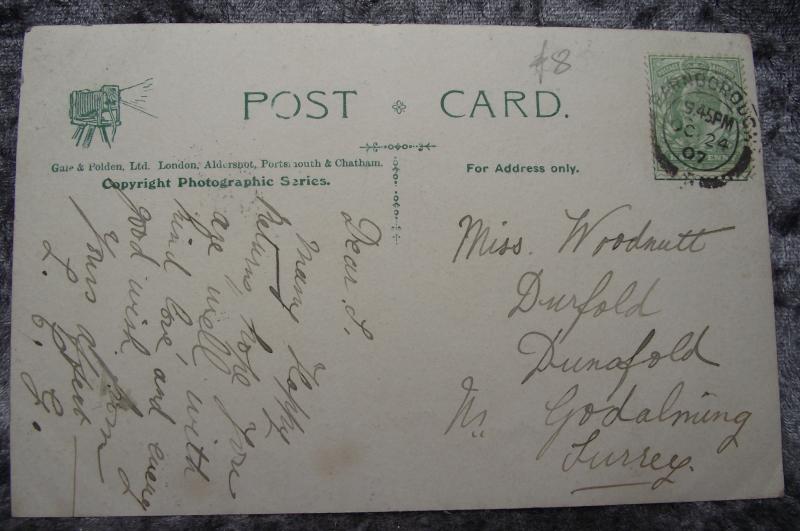 £8
POST CARD.
Gale & Polden, Ltd. London, Aldershot, Portsmouth & Chatham.
Copyright Photographic Series.
For Address only.
FARNBOROUGH
9.45PM
OC 24
07
Dear L,
Many Happy
Returns, hope you
are well, with
kind love, and every
good wish from
Yours affect
L. E. G.
Miss. Woodnutt
Durfold
Dunsfold
Nr Godalming
Surrey.